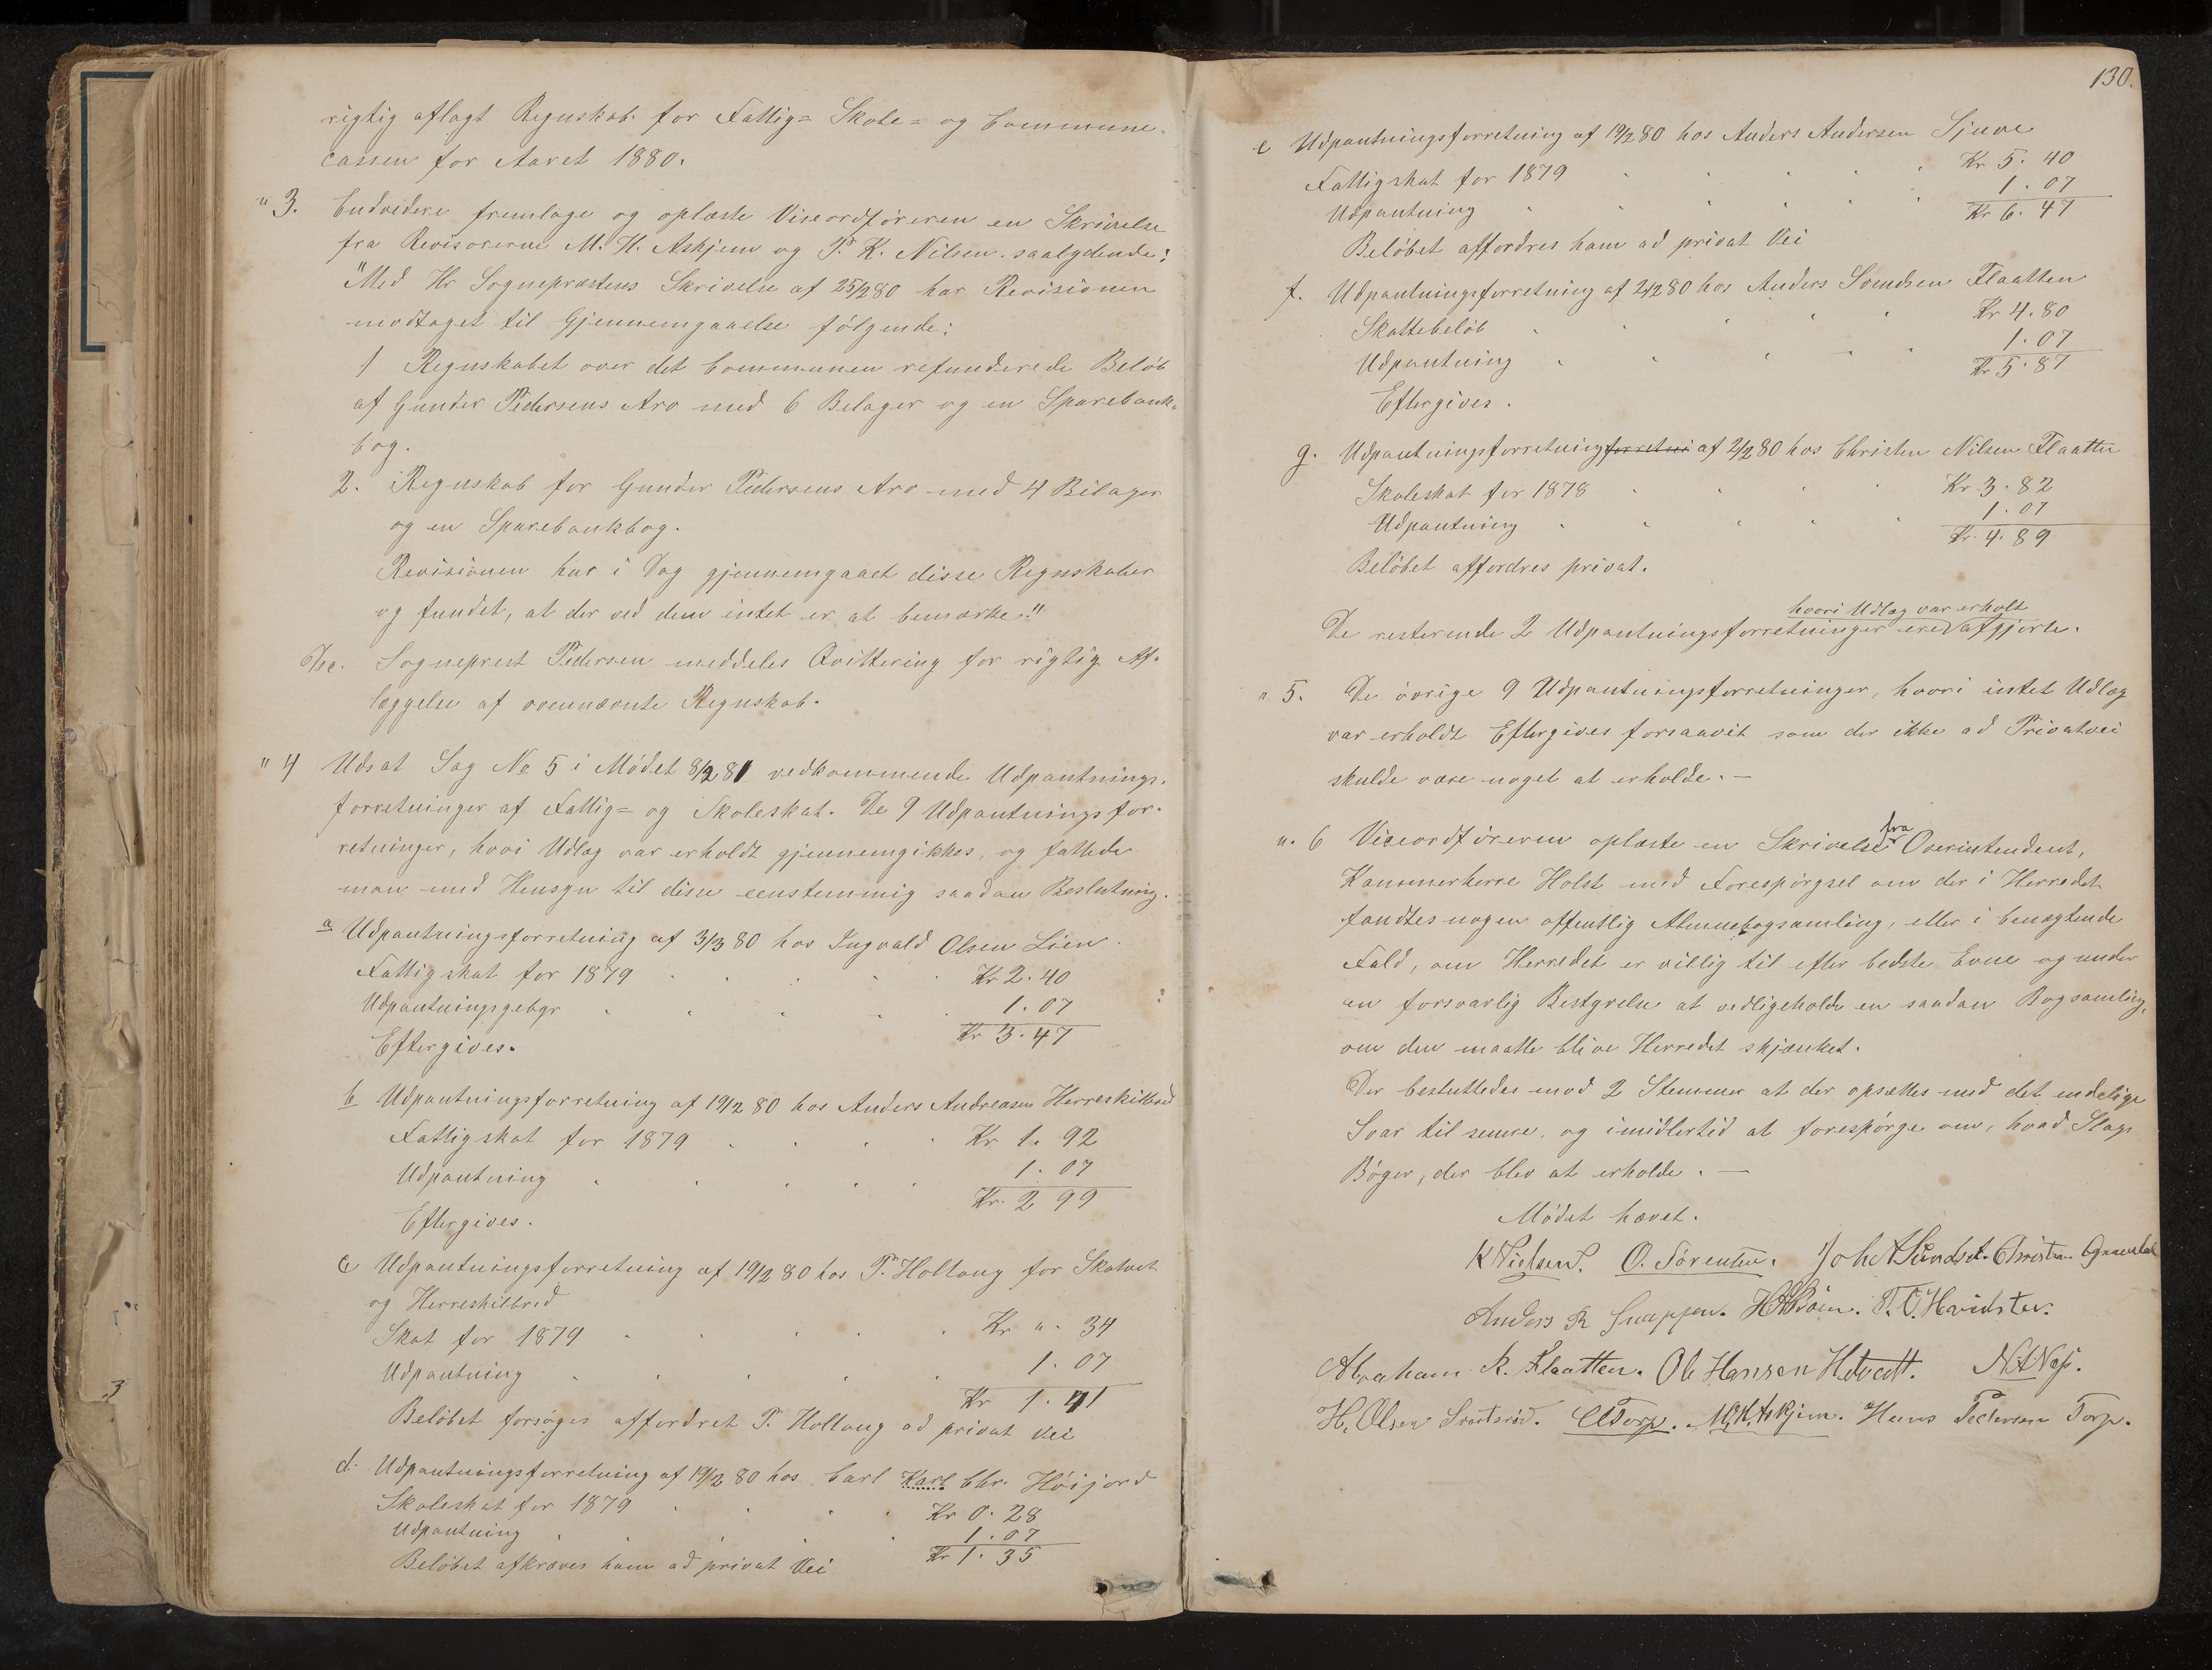 rigtig aflagt Regnskab for Fattig= Skole= og Commune-
cassen for Aaret 1880.
" 3. Endvidere fremlage og oplæste Viseordføreren en Skrivelse
fra Revisorerne M. H. Askjem og P. K. Nilsen saalydende:
"Med Hr Sogneprestens Skrivelse af 25/2 80 har Revisionen
modtaget til Gjennemgaaelse følgende:
1 Regnskabet over det Communen refunderede Beløb
af Gunder Pedersens Arv med 6 Belager og en Sparebank-
bog.
2. Regnskab for Gunder Pedersens Arv med 4 Bilager
og en Sparebankbog.
Revisionen har i Dag gjennemgaaet disse Regnskaber
og fundet, at der ved dem intet er at bemærke."
Dec. Sogneprest Pedersen meddeles Qvittering for rigtig Af-
læggelse af ovennævnte Regnskab.
" 4 Udsat Sag No 5 i Mødet 8/2 81 vedkommende Udpantnings-
forretninger af Fattig= og Skoleskat. De 9 Udpantningsfor-
retninger, hvori Udlæg var erholdt gjennemgikkes, og fattede
man med Hensyn til disse eenstemmig saadan Beslutning.
a Udpantningsforretning af 3/3 80 hos Ingvald Olsen Lien.
Fattigskat for 1879 Kr 2.40
Udpantningsgebyr 1.07
Kr 3.47
Eftergives.
b Udpantningsforretning af 19/2 80 hos Anders Andreasen Herreskilbred
Fattigskat for 1879 Kr 1. 92
Udpantning 1. 07
Kr. 2 99
Eftergives.
c Udpantningsforretning af 19/2 80 hos P. Holtang for Skatvet
og Herreskilbred
Skat for 1879 Kr ". 34
Udpantning 1. 07
Kr 1. 41
Beløbet forsøges affordret P. Holtang ad privat Vei
d. Udpantningsforretning af 19/2 80 hos Carl Karl Chr. Høijord
Skoleskat for 1879 Kr 0. 28
Udpantning 1. 07
Kr 1. 35
Beløbet afkræves ham ad privat Vei
130.
e Udpantningsforretning af 19/2 80 hos Anders Andersen Sjuve
Fattigskat for 1879 Kr 5. 40
Udpantning 1. 07
Kr 6. 47
Beløbet affordres ham ad privat Vei
f. Udpantningsforretning af 2/2 80 hos Anders Svendsen Flaatten
Skattebeløb Kr 4. 80
Udpantning 1. 07
Kr 5. 87
Eftergives.
g. Udpantningsforretningforretni af 2/2 80 hos Christen Nilsen Flaatten
Skoleskat for 1878 Kr 3. 82
Udpantning 1. 07
Kr. 4. 89
Beløbet affordres privat.
hvori Udlæg var erholt
De resterende 2 Udpantningsforretninger ere afgjorte.
" 5. De øvrige 9 Udpantningsforretninger, hvori intet Udlæg
var erholdt Eftergives forsaavit som der ikke ad Privatvei
skulde være noget at erholde. —
". 6 Viceordføreren oplæste en Skrivelse fra Overintendent,
Kammerherre Holst med Forespørgsel om der i Herredet
fandtes nogen offentlig Almuebogsamling, eller i benægtende
Fald, om Herredet er villig til efter bedste Evne og under
en forsvarlig Bestyrelse at vedligeholde en saadan Bogsamling,
om den maatte blive Herredet skjænket.
Der besluttedes mod 2 Stemmer at der opsættes med det endelige
Svar til senere, og imidlertid at forespørge om, hvad Slags
Bøger, der blev at erholde. —
Mødet hævet.
K Nielsen. O. Sørensen. Joh A Sundset. Christian Gravdal
Anders R Snappen. T. O. Hvidsten.
Abraham K. Flaatten. Ole Hansen Hotvedt. N A Næss.
H. Olsen Svartsrød. C Torp. M. H. Askjem. Hans Pedersen Torp.